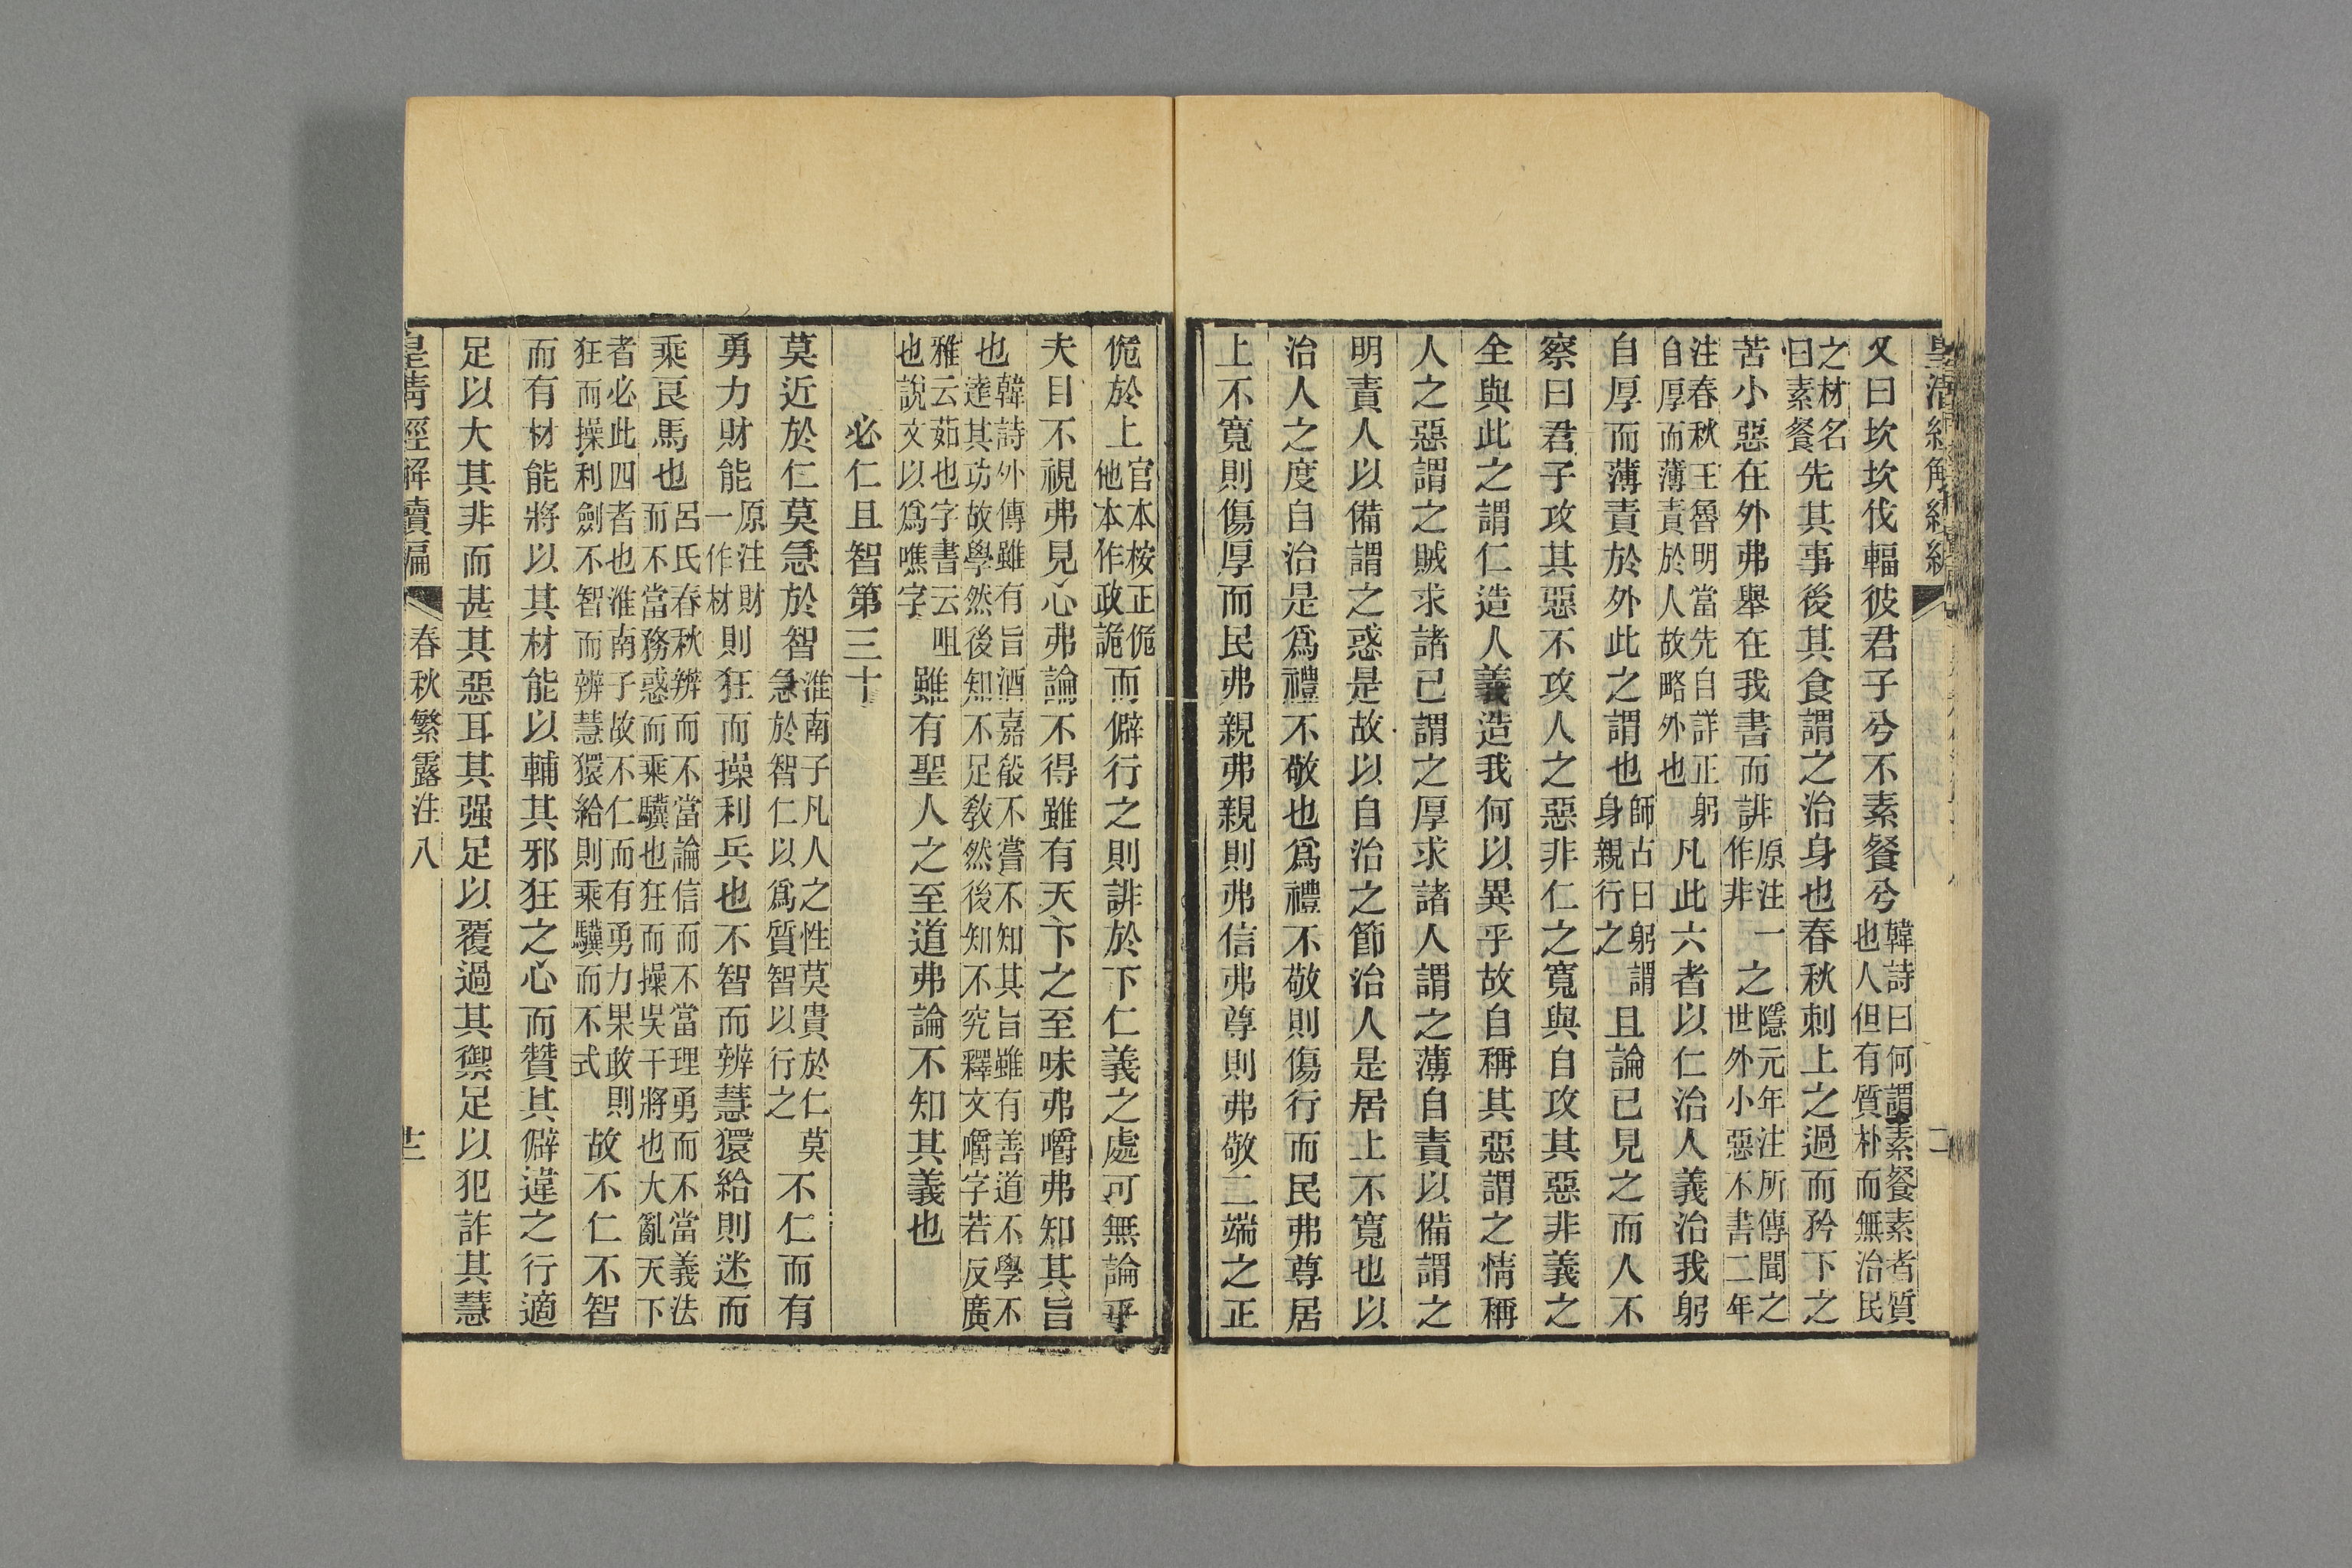 又曰坎坎伐輻彼君子兮不素餐兮韓詩曰何謂素餐素者質也人但有質朴而無治民
之材名曰素餐先其事後其食謂之治身也春秋刺上之過而矜下之
苦小惡在外弗舉在我書而誹原注一作非之隱元年注所傳聞之世外小惡不書二年
注春秋王魯明當先自詳正躬自厚而薄責於人故略外也凡此六者以仁治人義治我躬
自厚而薄責於外此之謂也師古曰躬謂身親行之且論已見之而人不
察曰君子攻其惡不攻人之惡非仁之寬與自攻其惡非義之
全與此之謂仁造人義造我何以異乎故自稱其惡謂之情稱
人之惡謂之賊求諸已謂之厚求諸人謂之薄自責以備謂之
明責人以備謂之惑是故以自治之節治人是居上不寬也以
治人之度自治是爲禮不敬也爲禮不敬則傷行而民弗尊居
上不寬則傷厚而民弗親弗親則弗信弗尊則弗敬二端之正
傂於上官本桉正傂他本作政詭而僻行之則誹於下仁義之處可無論乎
夫目不視弗見心弗論不得雖有天下之至味弗嚼弗知其旨
也韓詩外傳雖有旨酒嘉殽不嘗不知其旨雖有善道不學不達其功故學然後知不足敎然後知不究釋文嚼字若反廣
雅云茹也字書云咀也說文以爲噍字雖有聖人之至道弗論不知其義也
必仁且智第三十
莫近於仁莫急於智淮南子凡人之性莫貴於仁莫急於智仁以爲質智以行之不仁而有
勇力財能原注財一作材則狂而操利兵也不智而辨慧獧給則迷而
乘良馬也呂氏春秋辨而不當論信而不當理勇而不當義法而不當務惑而乘驥也狂而操吳干將也大亂天下
者必此四者也淮南子故不仁而有勇力果敢則狂而操利劍不智而辨慧獧給則乘驥而不式故不仁不智
而有材能將以其材能以輔其邪狂之心而贊其僻違之行適
足以大其非而甚其惡耳其强足以覆過其禦足以犯詐其慧
皇清經解續編 春秋繁露注八